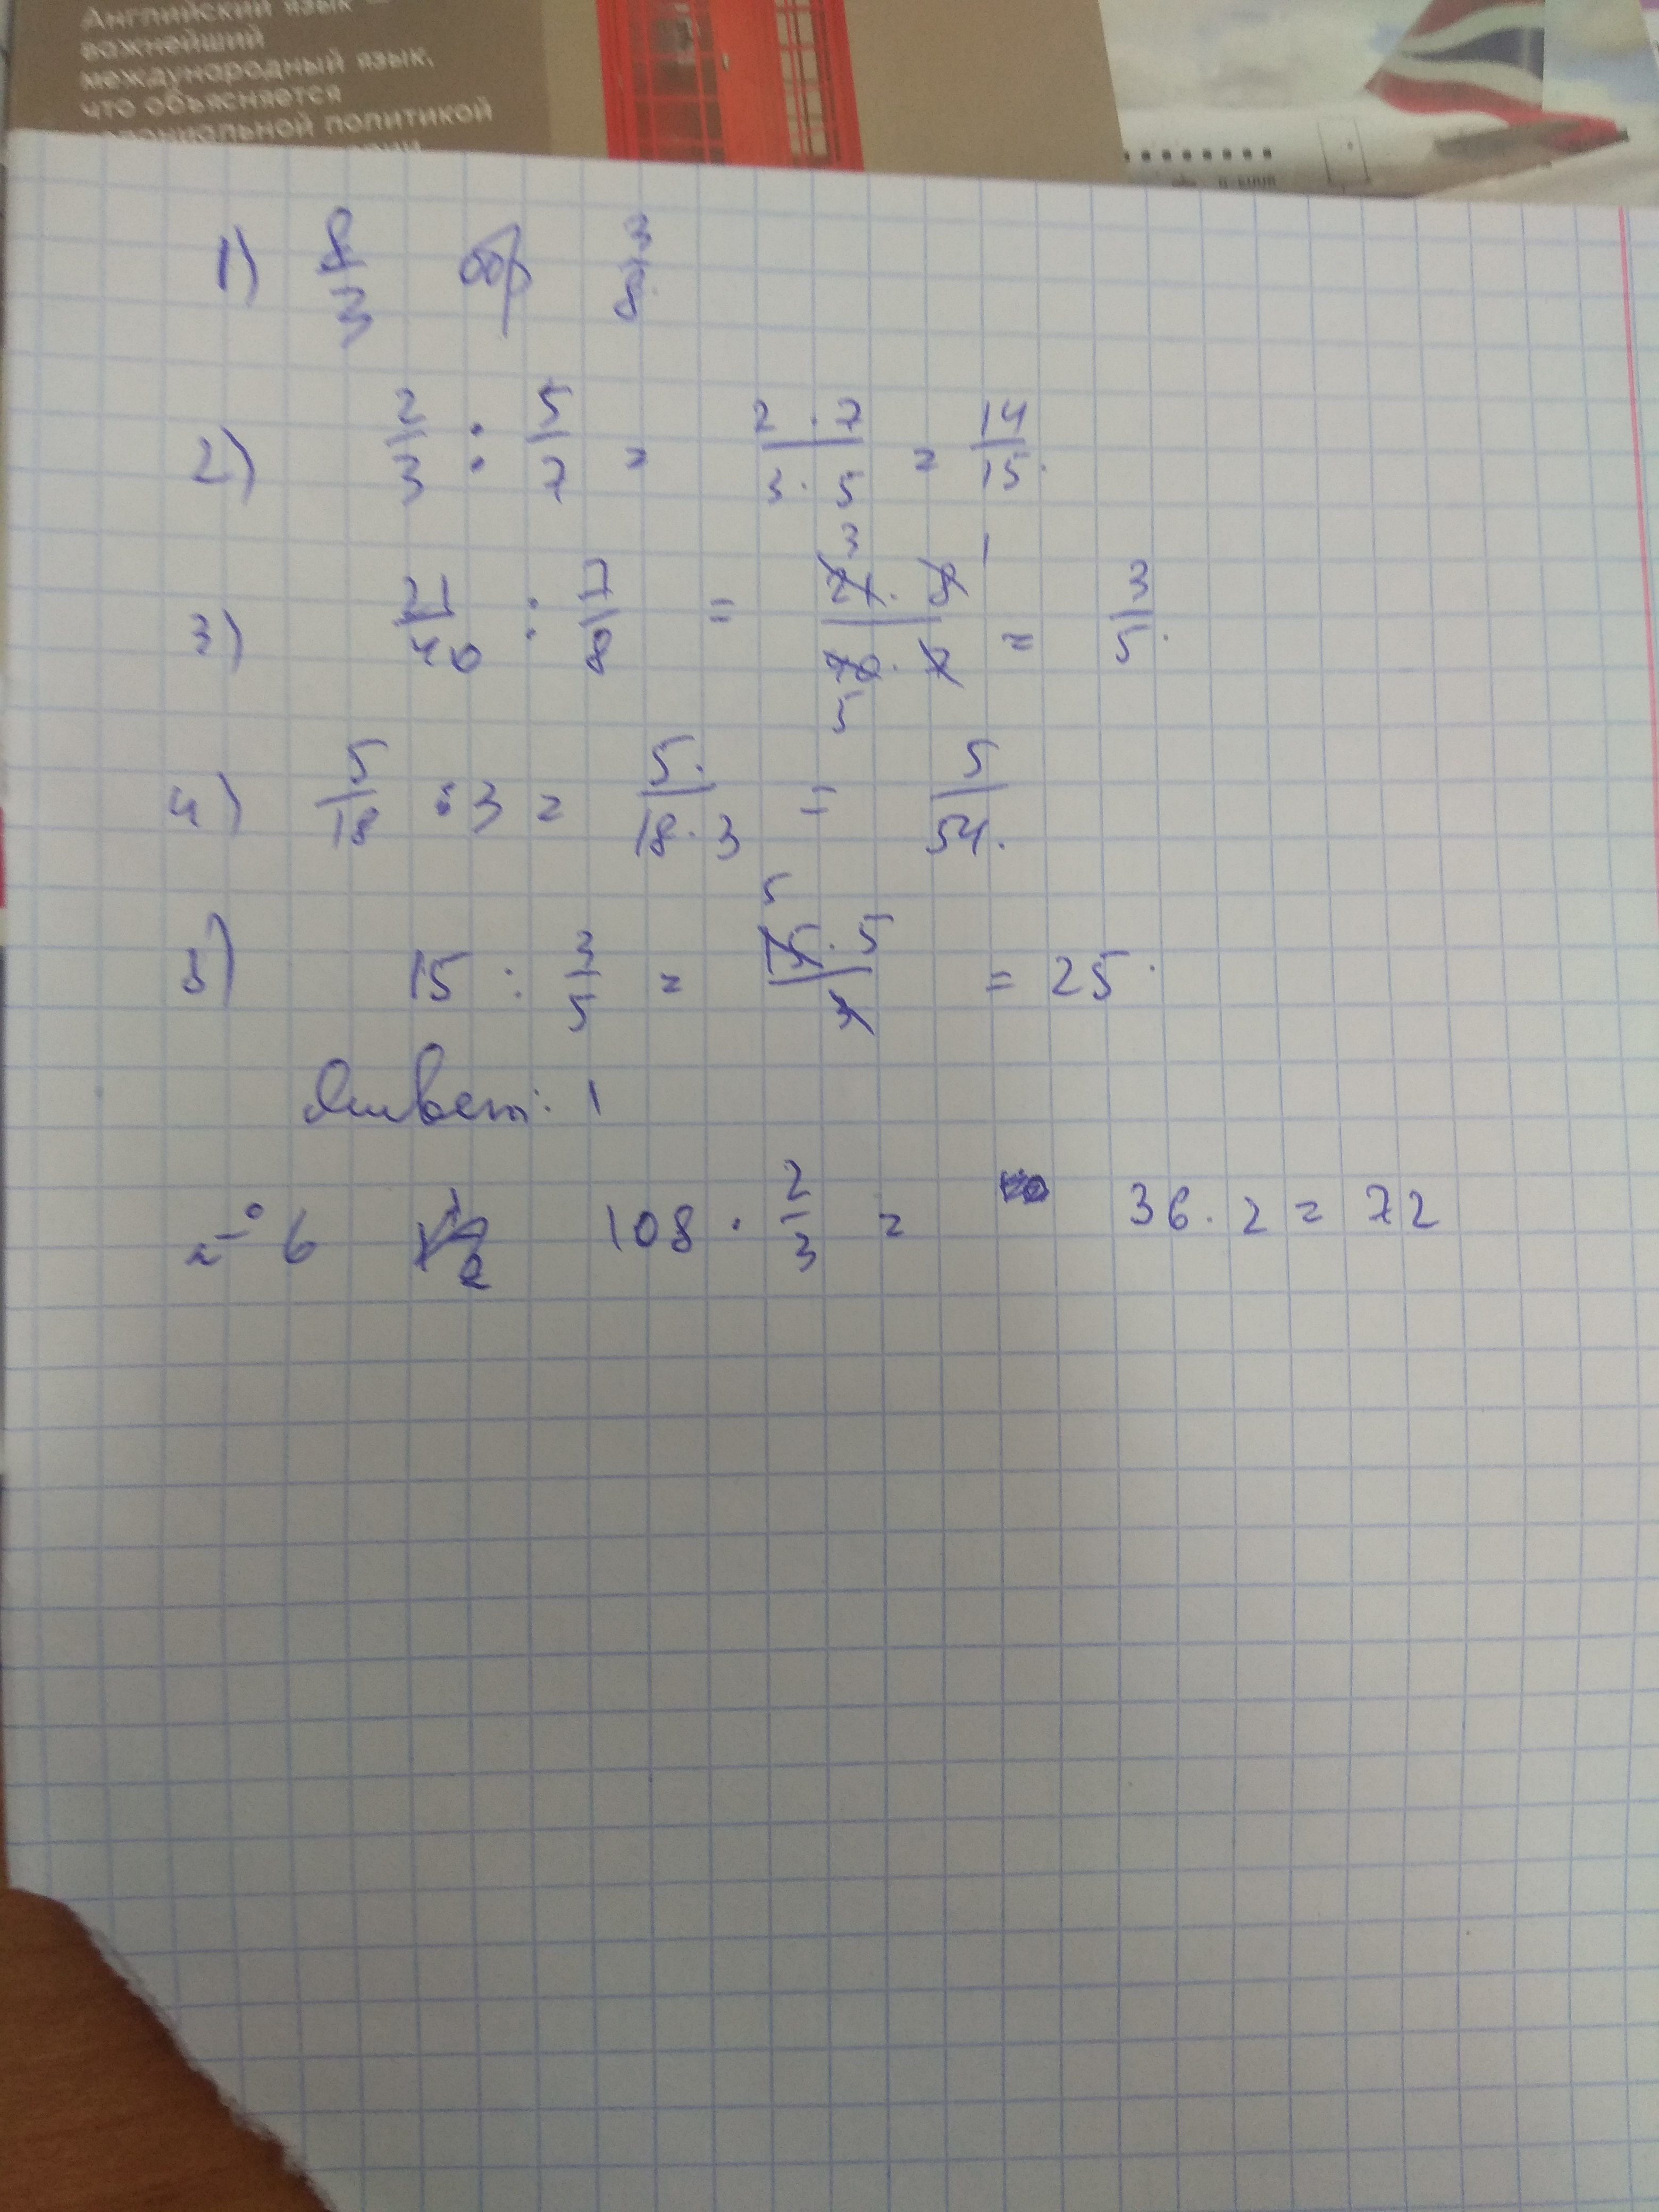 Английский язык —
важнейший
международный язык,
что объясняется
колониальной политикой
1) 8/3 обр 3/8
2) 2/3 : 5/7 = 2 · 7/3 · 5 = 14/15.
3) 21/40 : 7/8 = 21 · 8/40 · 7 = 3/5.
3 1 5
4) 5/18 : 3 = 5·/18 · 3 = 5/54.
5) 15 : 3/5 = 15 · 5/3 = 25.
5
Ответ: 1
6 108 · 2/3 = 36 · 2 = 72